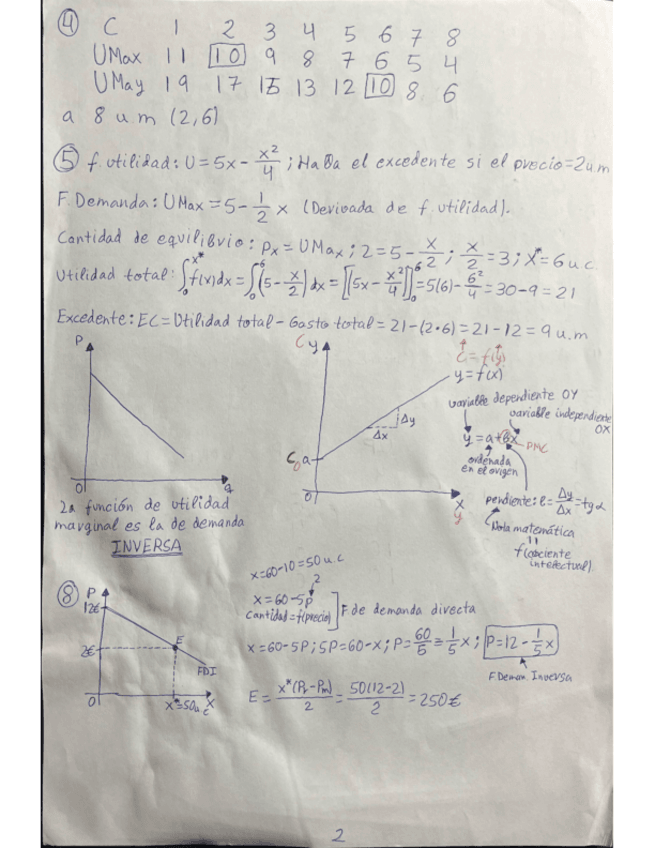 ④ C 1 2 3 4 5 6 7 8
UMax 11 10 9 8 7 6 5 4
UMay 19 17 15 13 12 10 8 6
a 8 u m (2,6)
⑤ f. utilidad: U = 5x - x²/4 ; Halla el excedente si el precio = 2 u.m
F Demanda: UMax = 5 - 1/2 x (Derivada de f utilidad).
Cantidad de equilibrio: Px = UMax ; 2 = 5 - x/2 ; x/2 = 3 ; x* = 6 u c.
Utilidad total: ∫₀^x* f(x)dx = ∫₀^6 (5 - x/2) dx = [[5x - x²/4]]₀^6 = 5(6) - 6²/4 = 30 - 9 = 21
Excedente: EC = Utilidad total - Gasto total = 21 - (2·6) = 21 - 12 = 9 u.m
P
O
q
La función de utilidad
marginal es la de demanda
INVERSA
C y
C = f(y)
y = f(x)
Δy
Δx
C₀ a
O
x
y
variable dependiente OY
variable independiente
OX
y = a + bx
PMC
ordenada
en el origen
pendiente: b = Δy/Δx = tg α
Nota matemática
f(cociente
intelectual)
⑧ P
12€
2€
E
FDI
O
x* = 50 u.c
x
x = 60 - 10 = 50 u.c
2
x = 60 - 5p
Cantidad = f(precio)
F de demanda directa
x = 60 - 5P ; 5P = 60 - x ; P = 60/5 - 1/5 x ; P = 12 - 1/5 x
F Deman. Inversa
E = x*(Pr - Pm)/2 = 50(12 - 2)/2 = 250€
2